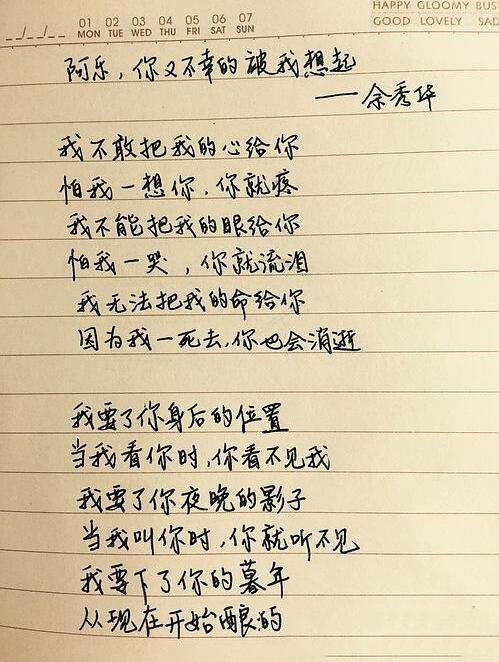 __/__/__ 01 02 03 04 05 06 07 HAPPY GLOOMY BUS
MON TUE WED THU FRI SAT SUN GOOD LOVELY SAD
阿乐，你又不幸的被我想起
——余秀华
我不敢把我的心给你
怕我一想你，你就疼
我不能把我的眼给你
怕我一哭，你就流泪
我无法把我的命给你
因为我一死去，你也会消逝
我要了你身后的位置
当我看你时，你看不见我
我要了你夜晚的影子
当我叫你时，你就听不见
我要下了你的暮年
从现在开始酿的